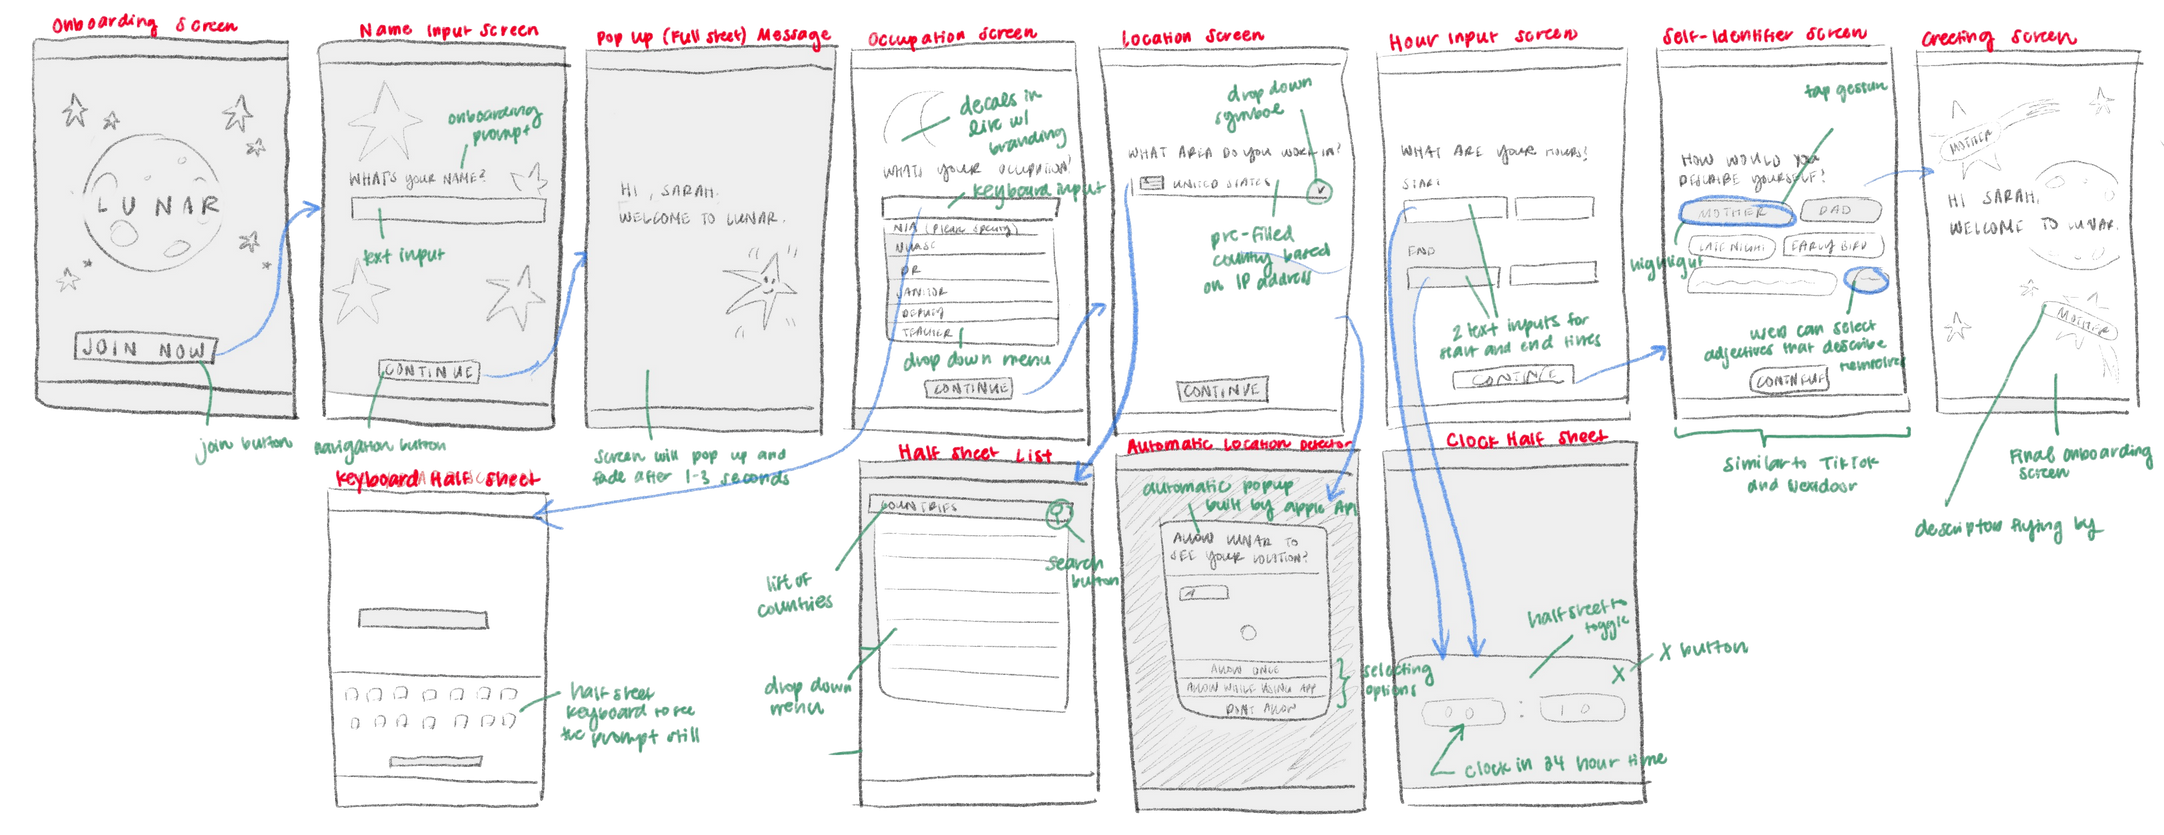 Onboarding Screen
LUNAR
JOIN NOW
join button
Name Input Screen
onboarding
prompt
WHATS YOUR NAME?
text input
CONTINUE
navigation button
Pop Up (Full sheet) Message
HI, SARAH.
WELCOME TO LUNAR.
screen will pop up and
fade after 1-3 seconds
Occupation Screen
decals in
line w/
branding
WHATS YOUR OCCUPATION?
keyboard input
N/A (Please Specify)
NURSE
DR
JANITOR
DEPUTY
TEACHER
drop down menu
CONTINUE
Location Screen
drop down
symbol
WHAT AREA DO YOU WORK IN?
UNITED STATES
pre-filled
country based
on IP address
CONTINUE
Hour Input Screen
WHAT ARE YOUR HOURS?
START
END
2 text inputs for
start and end times
CONTINUE
Self-Identifier Screen
tap gesture
HOW WOULD YOU
DESCRIBE YOURSELF?
MOTHER
DAD
LATE NIGHT
EARLY BIRD
highlight
users can select
adjectives that describe
themselves
CONTINUE
similar to TikTok
and Nextdoor
Greeting Screen
MOTHER
HI SARAH,
WELCOME TO LUNAR.
MOTHER
Final onboarding
screen
descriptors flying by
Keyboard Half sheet
half sheet
keyboard to see
the prompt still
Half sheet List
COUNTRIES
search
button
list of
countries
drop down
menu
Automatic Location Detector
automatic popup
built by apple API
ALLOW LUNAR TO
SEE YOUR LOCATION?
ALLOW ONCE
ALLOW WHILE USING APP
DON'T ALLOW
selecting
options
Clock Half sheet
half sheet
toggle
X button
X
00 : 10
clock in 24 hour time